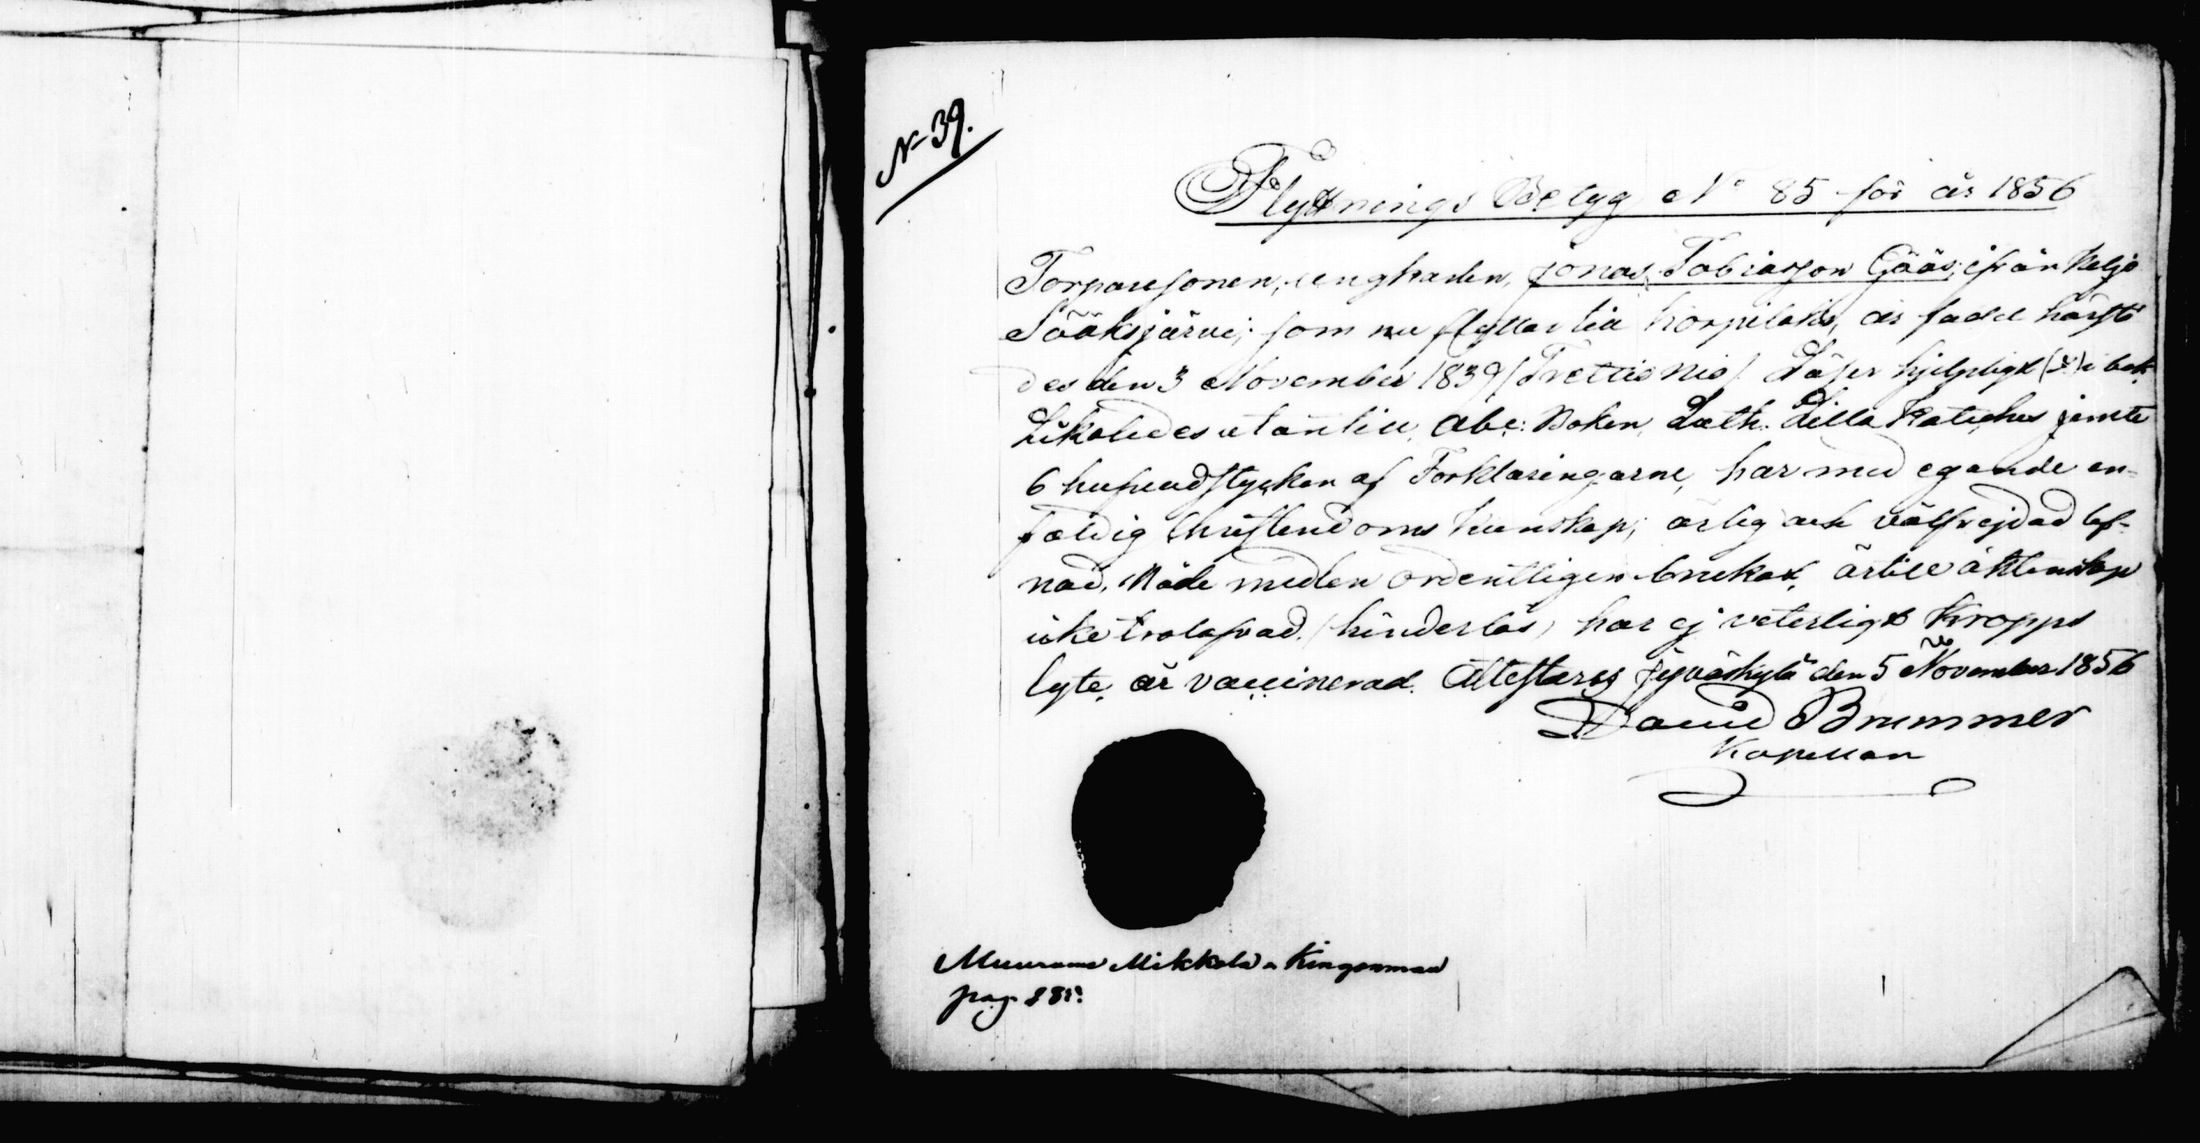 N 39.
Flyttnings Betyg No 85 för år 1856
Torparesonen, ungkarlen, Jonas Tobiasson Gääs, ifrån Keljo
Sääksjärvi; som nu flyttar till Korpilaks, är född härstä
des den 3 November 1839 /Trettio nio/. Läser hjelpligt i bok
Likaledes utantill, Abc: Boken, Luth. Lilla Kateches jemte
6 hufvudstycken af Förklaringarne, har med egande en-
faldig Christendoms kunskap; ärlig och välfrejdad lef-
nad, Nåde medlen ordentligen brukat, är till äktenskap
icke trolofvad (hinderlös) har ej veterligt kropps
lyte, är vaccinerad. Attesteras Jyväskylä den 5 November 1856
David Brummer
Kapellan
Muurame Mikkola
pag 88